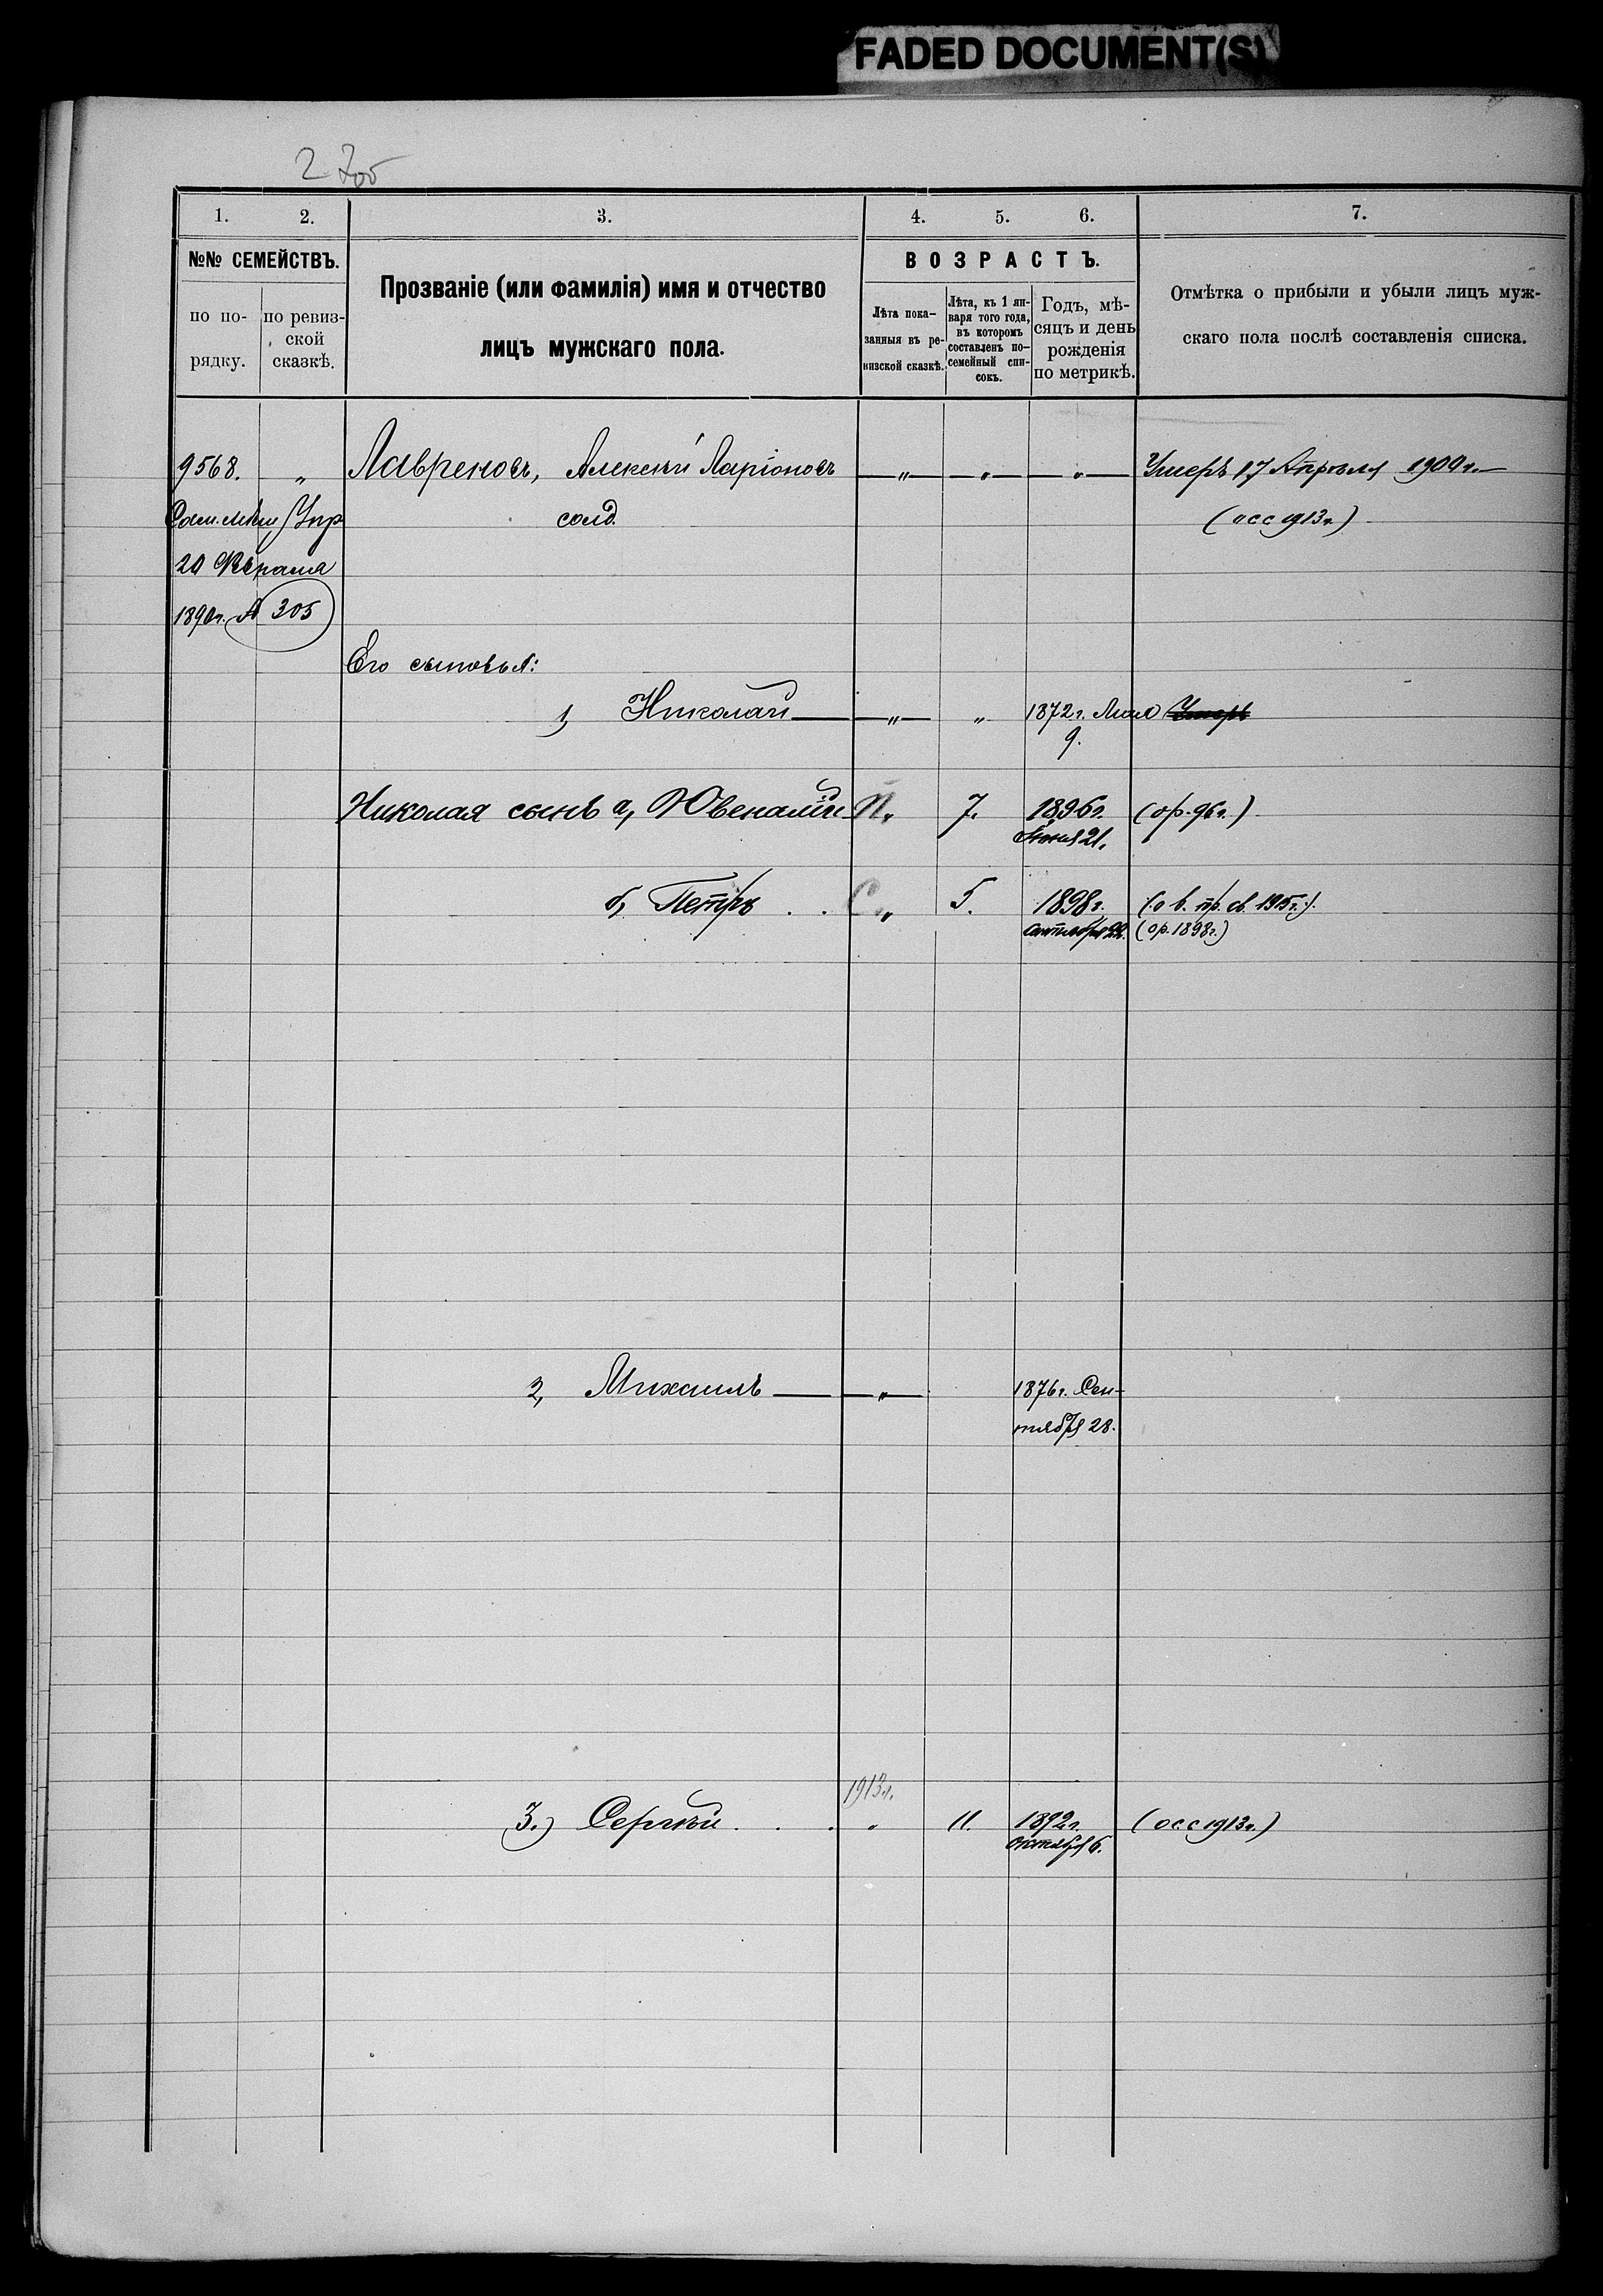 FADED DOCUMENT(S)
1. 2. 3. 4. 5. 6. 7.
№№ СЕМЕЙСТВЪ.
по по-
рядку.
по ревиз-
ской
сказкѣ.
Прозваніе (или фамилія) имя и отчество
лицъ мужскаго пола.
ВОЗРАСТЪ.
Лѣта пока-
занныя въ ре-
визской сказкѣ.
Лѣта, къ 1 ян-
варя того года,
въ которомъ
составленъ по-
семейный спи-
сокъ.
Годъ, мѣ-
сяцъ и день
рожденія
по метрикѣ.
Отмѣтка о прибыли и убыли лицъ муж-
скаго пола послѣ составленія списка.
9568. „ Лавреновъ, Алексѣй Ларіоновъ „ „ „ Умеръ 17 Апрѣля 1900 г.
солд. (осс 1913 г.)
20
1890 г. 305
Его сыновья:
1, Николай „ „ 1872 г. Умеръ
9.
Николая сынъ а, Ювеналій П„ 7. 1896 г. (ор. 96 г.)
21.
б, Петръ . . С„ 5. 1898 г. (о в. пр. св. 1915 г.)
сентября 22. (ор. 1898 г.)
2, Михаилъ „ 1876 г. Сен-
тября 28.
1913 г.
3.) Сергѣй . . . „ 11. 1892 г. (осс 1913 г.)
октября 6.